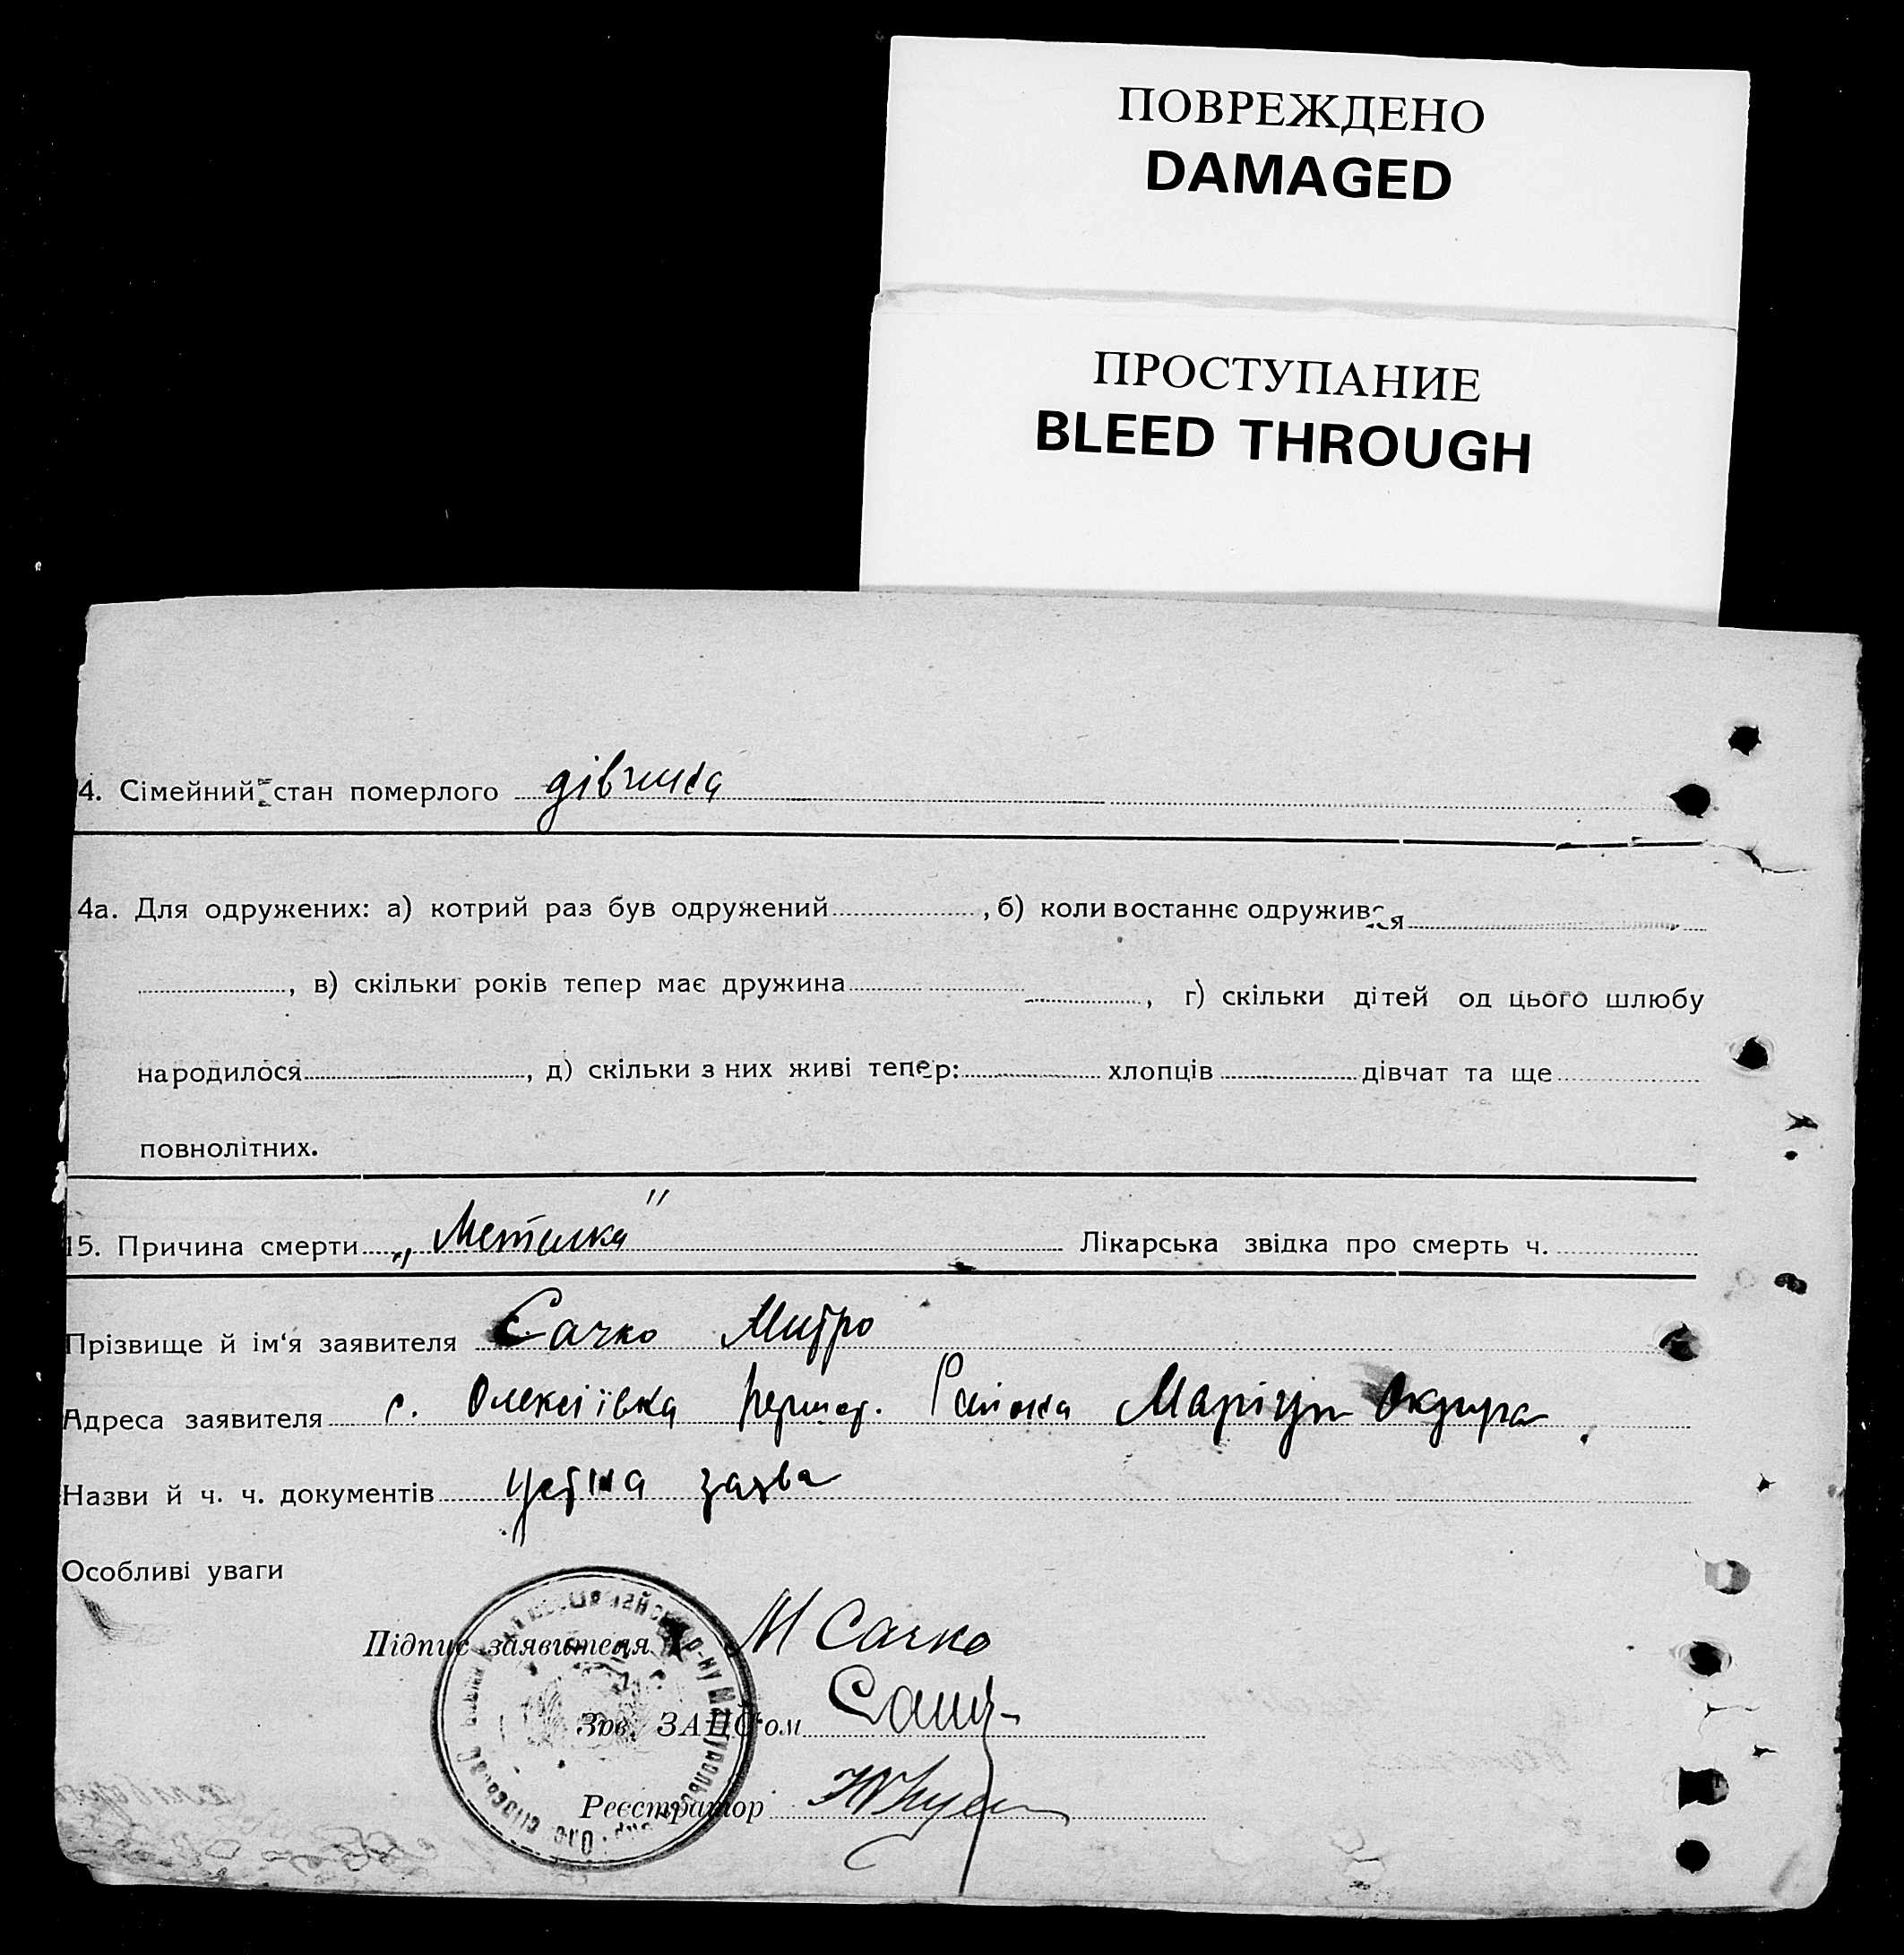 ПОВРЕЖДЕНО
DAMAGED
ПРОСТУПАНИЕ
BLEED THROUGH
4. Сімейний стан померлого дівчинка
4а. Для одружених: а) котрий раз був одружений, б) коли востаннє одружився
, в) скільки років тепер має дружина, г) скільки дітей од цього шлюбу
народилося, д) скільки з них живі тепер: хлопців дівчат та ще
повнолітних.
15. Причина смерти „Метилка" Лікарська звідка про смерть ч.
Прізвище й ім'я заявителя Сачко Митро
Адреса заявителя с. Олексіївка Першот. Району Маріуп Округа
Назви й ч. ч. документів устна заява
Особливі уваги
Підпис заявителя М Сачко
Зав. ЗАЦС'ом
Реєстратор